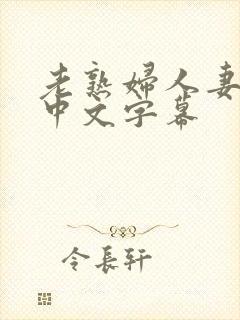 老熟婦人妻
中文字幕
令長軒